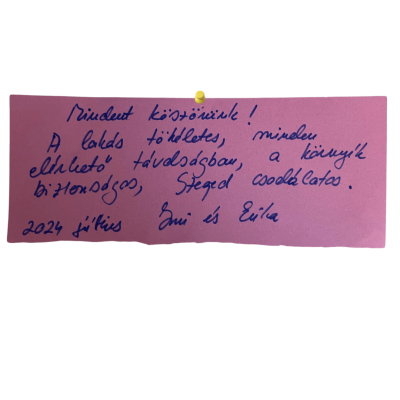 Mindent köszönünk!
A lakás tökéletes, minden
elérhető távolságban, a környék
biztonságos, Szeged csodálatos.
2024 július Imi és Erika